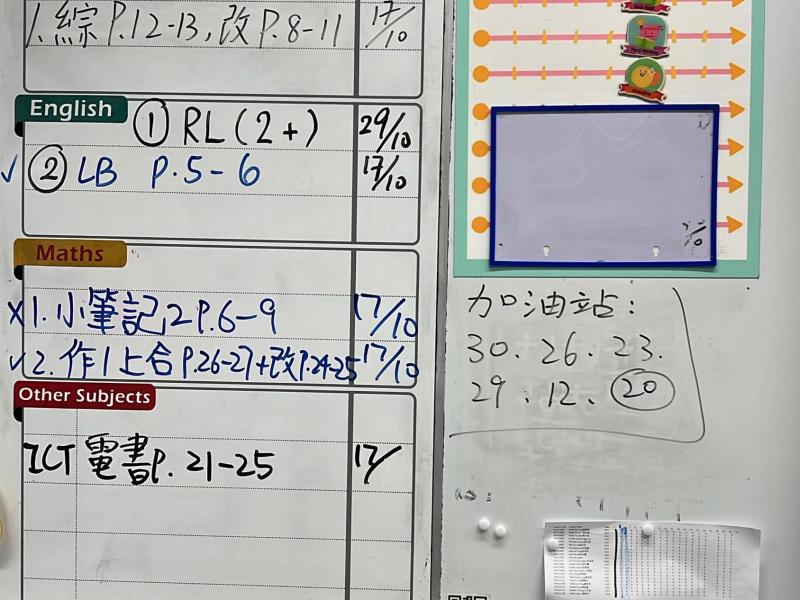 1. 綜 P.12-13, 改 P.8-11 17/10
English
① RL (2+) 29/10
✓ ② LB P.5-6 17/10
Maths
X 1. 小筆記2 P.6-9 17/10
✓ 2. 作1上合 P.26-27+改P.24-25 17/10
Other Subjects
ICT 電書 P. 21-25 17/
加油站:
30. 26. 23.
29. 12. 20